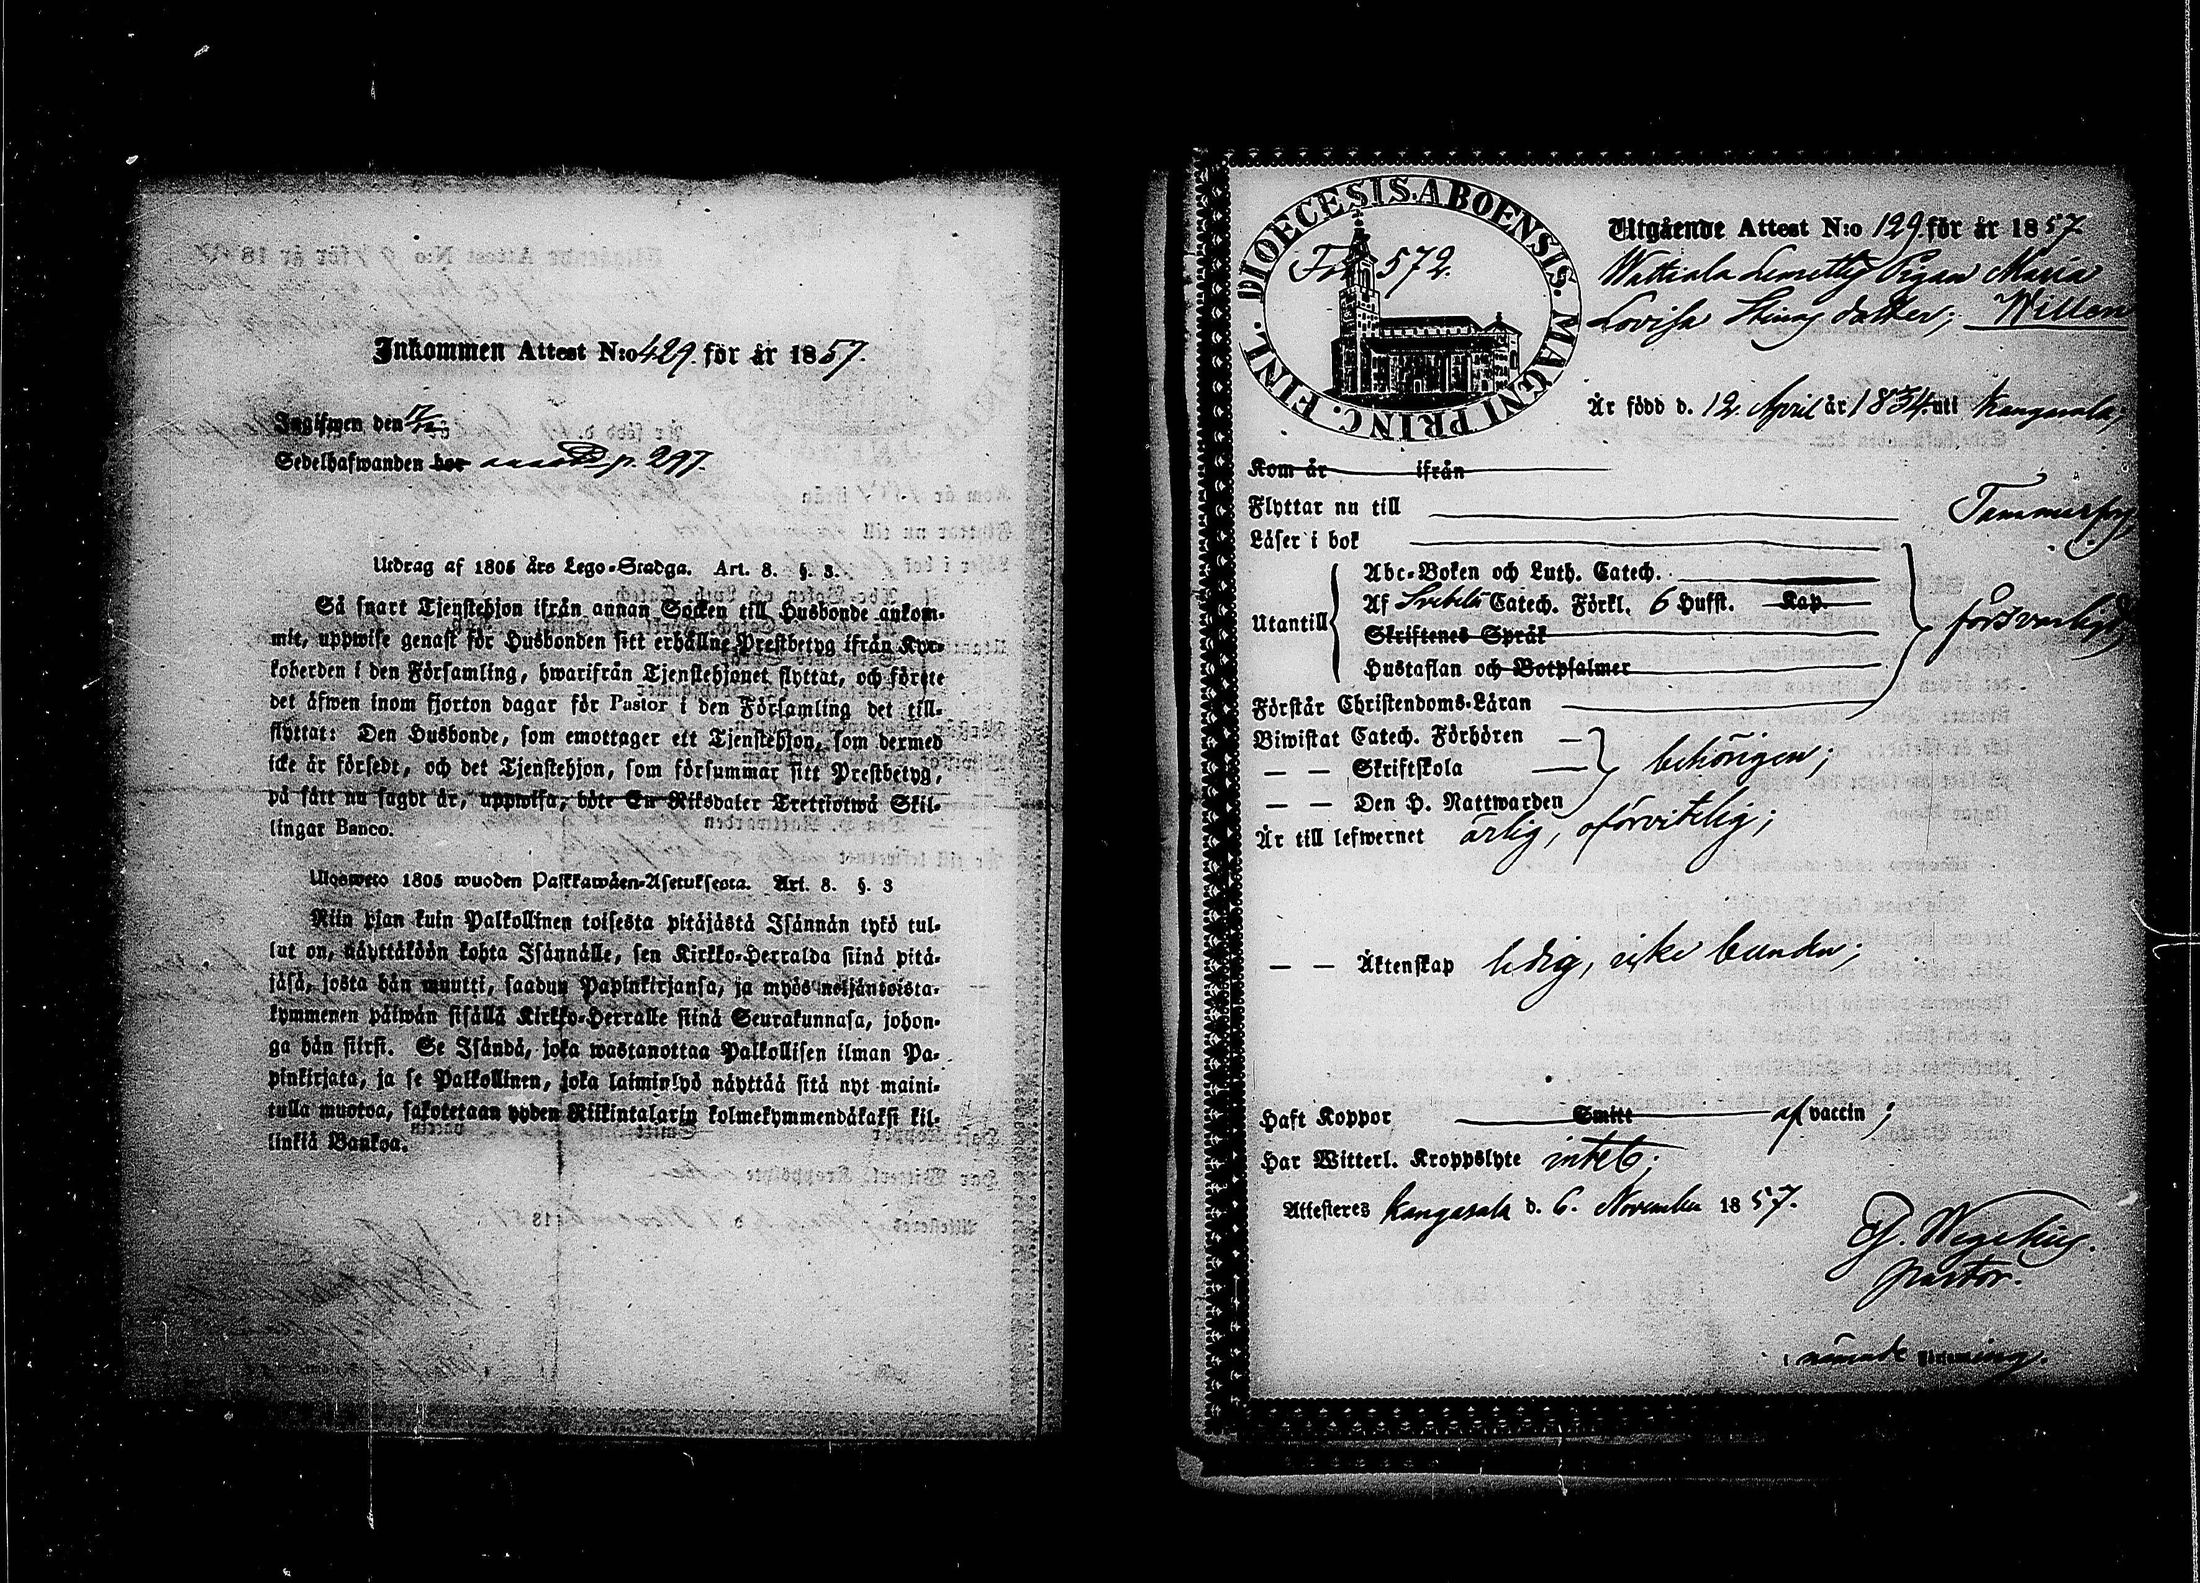 Inkommen Attest N:o 429. för år 1857.
Ingifwen den
Sedelhafwanden bor p. 297.
Utdrag af 1805 års Lego-Stadga. Art. 8. §. 3.
Så snart Tjenstehjon ifrån annan Socken till Husbonde ankom-
mit, uppwise genast för Husbonden sitt erhållne Prestbetyg ifrån Kyr-
koherden i den Församling, hwarifrån Tjenstehjonet flyttat, och förete
det äfwen inom fjorton dagar för Pastor i den Församling det till-
flyttat: Den Husbonde, som emottager ett Tjenstehjon, som dermed
icke är försedt, och det Tjenstehjon, som försummar sitt Prestbetyg,
på sätt nu sagdt är, uppwisa, böte En Riksdaler Trettiotwå Skil-
lingar Banco.
Ulosweto 1805 wuoden Palkkawäen-Asetuksesta. Art. 8. §. 3
Niin pian kuin Palkollinen toisesta pitäjästä Isännän tykö tul-
lut on, näyttäköön kohta Isännälle, sen Kirkko-Herralda siinä pitä-
jäsä, josta hän muutti, saadun Papinkirjansa, ja myös neljäntoista-
kymmenen päiwän sisällä Kirkko-Herralle siinä Seurakunnasa, johon-
ga hän siirsi. Se Isändä, joka wastanottaa Palkollisen ilman Pa-
pinkirjata, ja se Palkollinen, joka laiminlyö näyttää sitä nyt maini-
tulla muotoa, sakotetaan yhden Riikintalarin kolmekymmendäkaksi kil-
linkiä Bankoa.
DIOECESIS. ABOENSIS. MAGNI PRINC. FINL.
Fol 572.
Utgående Attest N:o 129. för år 1857.
Wattiala Lemettÿ Pigan Maria
Lovisa Stinas dotter; Willen
Är född d. 12. April år 1834. uti Kangasala,
Kom år ifrån
Flyttar nu till Tammerfors
Läser i bok
Utantill
Abc-Boken och Luth. Catech.
Af Svebelii Catech. Förkl. 6 Hufst. Kap.
Skriftenes Språk
Hustaflan och Botpsalmer
försvarligt
Förstår Christendoms-Läran
Biwistat Catech. Förhören
— — Skriftskola behörigen;
— — Den H. Nattwarden
Är till lefwernet ärlig, oförvitelig;
— — Äktenskap ledig, icke bunden;
Haft Koppor Smitt af vaccin;
Har Witterl. Kroppslyte intet;
Attesteres Kangasala d. 6. November 1857.
Wegelius.
pastor.
i nämnde Församling.